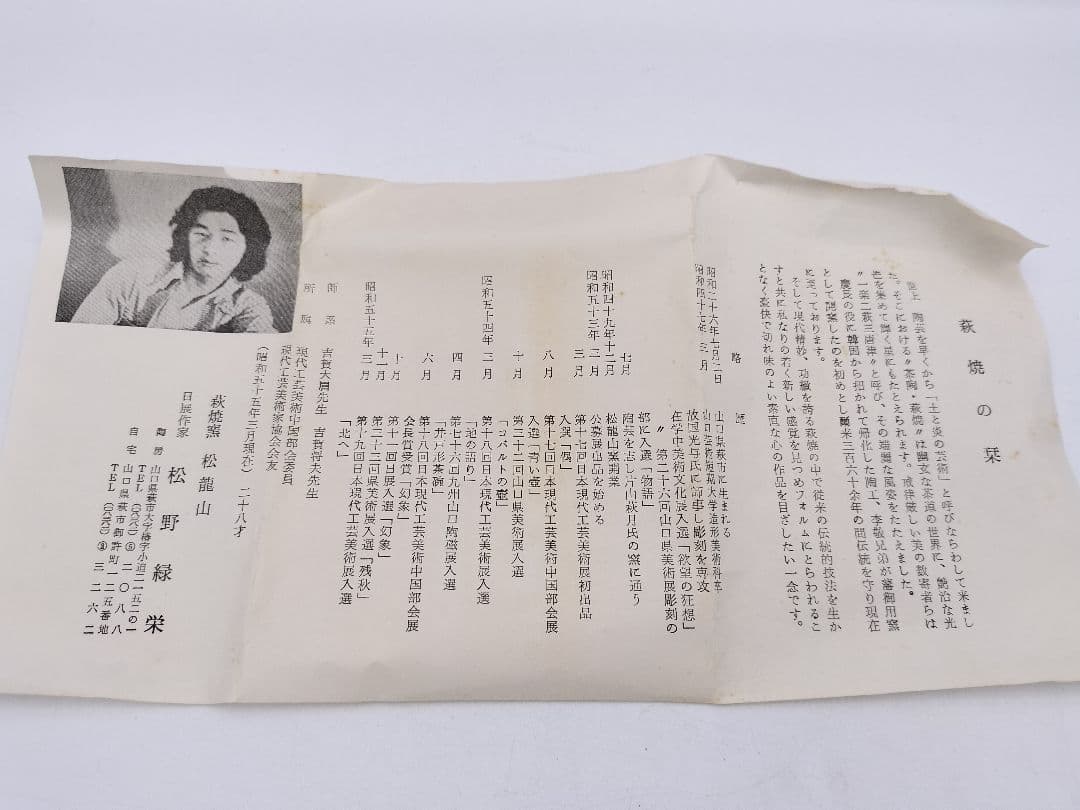 萩焼の栞
陶芸を早くから「土と炎の芸術」と呼びならわして来まし
た。そこにおける〝茶陶・萩焼〟は幽玄な茶道の世界に、艶冶な光
芒を集めて輝く星にもたとえられます。戒律厳しい美の数寄者らは
〝一楽二萩三唐津〟と呼び、その端麗な風姿をたたえました。
慶長の役に韓国から招かれて帰化した陶工、李敬兄弟が藩御用窯
として開窯したのを初めとし爾来三百六十余年の間伝統を守り現在
に至っております。
そして現代精妙、功緻を誇る萩焼の中で従来の伝統的技法を生か
すと共に私なりの若く新しい感覚を見つめフォルムにとらわれるこ
となく豪快で切れ味のよい素直な心の作品を目ざしたい一念です。
略歴
昭和二十六年七月二日 山口県萩市に生まれる
昭和四十七年三月 山口芸術短期大学造形美術科卒
故国光与氏に師事し彫刻を専攻
在学中美術文化展入選「欲望の狂想」
〃 第二十六回山口県美術展彫刻の
部に入選「物語」
七月 陶芸を志し片山萩月氏の窯に通う
昭和四十九年十二月 松龍山窯開業
昭和五十三年二月 公募展出品を始める
三月 第十七回日本現代工芸美術展初出品
入選「偶」
八月 第十七回日本現代工芸美術中国部会展
入選「青い壺」
十月 第三十二回山口県美術展入選
「コバルトの壷」
昭和五十四年三月 第十八回日本現代工芸美術展入選
「地の語り」
四月 第七十六回九州山口陶磁展入選
「井戸形茶碗」
六月 第十八回日本現代工芸美術中国部会展
会長賞受賞「幻象」
十月 第十一回日展入選「幻象」
十一月 第三十三回県美術展入選「残秋」
昭和五十五年三月 第十九回日本現代工芸美術展入選
「北へ」
師系 吉賀大眉先生 吉賀将夫先生
所属 現代工芸美術中国部会委員
現代工芸美術家協会会友
(昭和五十五年三月現在) 二十八才
萩焼窯 松龍山
日展作家 松野緑栄
陶房 山口県萩市大字椿字小迫二一五二の一
TEL(〇八三八二)⑤二〇八八
自宅 山口県萩市御許町一二五番地
TEL(〇八三八二)②三二六二